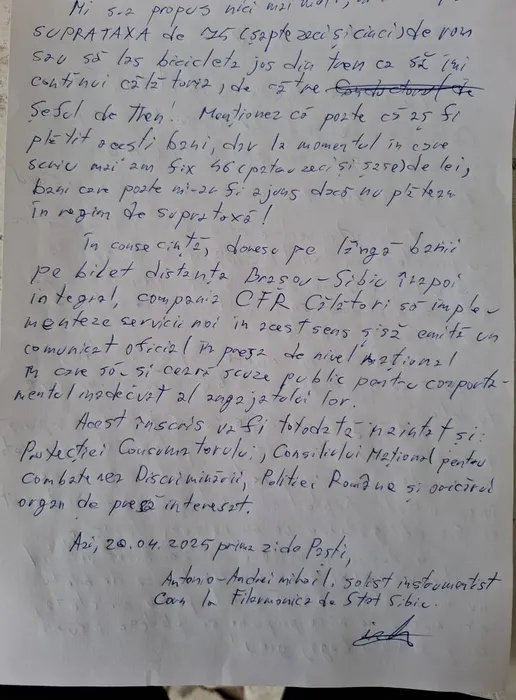 Mi s-a propus nici mai mult,
SUPRATAXA de 75 (șapte zeci și cinci) de ron
sau să las bicicleta jos din tren ca să îmi
continui călătoria, de către Conductorul de
Șeful de Tren! Menționez că poate că aș fi
plătit acești bani, dar la momentul în care
scriu mai am fix 46 (patru zeci și șase) de lei,
bani care poate mi-ar fi ajuns dacă nu plăteam
în regim de suprataxă!
În consecință, doresc pe lângă banii
pe bilet distanța Brașov-Sibiu înapoi
integral, compania CFR Călători să imple-
menteze servicii noi în acest sens și să emită un
comunicat oficial în presa de nivel național
în care să-și ceară scuze public pentru comporta-
mentul inadecvat al angajatului lor.
Acest înscris va fi totodată înaintat și:
Protecției Consumatorului, Consiliului Național pentru
Combaterea Discriminării, Poliției Române și oricărui
organ de presă interesat.
Azi, 20.04.2025 prima zi de Paști,
Antonio-Andrei Mihail, solist instrumentist
Corn la Filarmonica de Stat Sibiu.